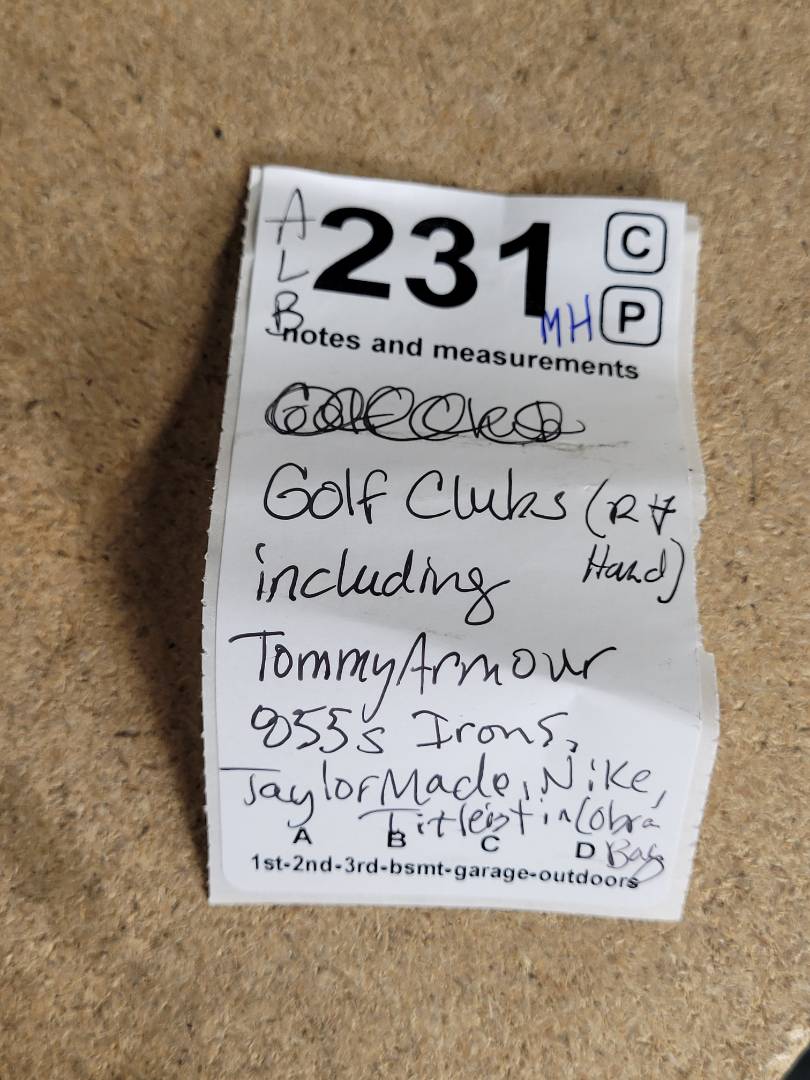 ALB
231
C
MH
P
notes and measurements
Golf Clubs (Rt
Hand)
including
Tommy Armour
855s Irons,
TaylorMade, Nike,
Titleist in Cobra
Bag
A B C D
1st-2nd-3rd-bsmt-garage-outdoors